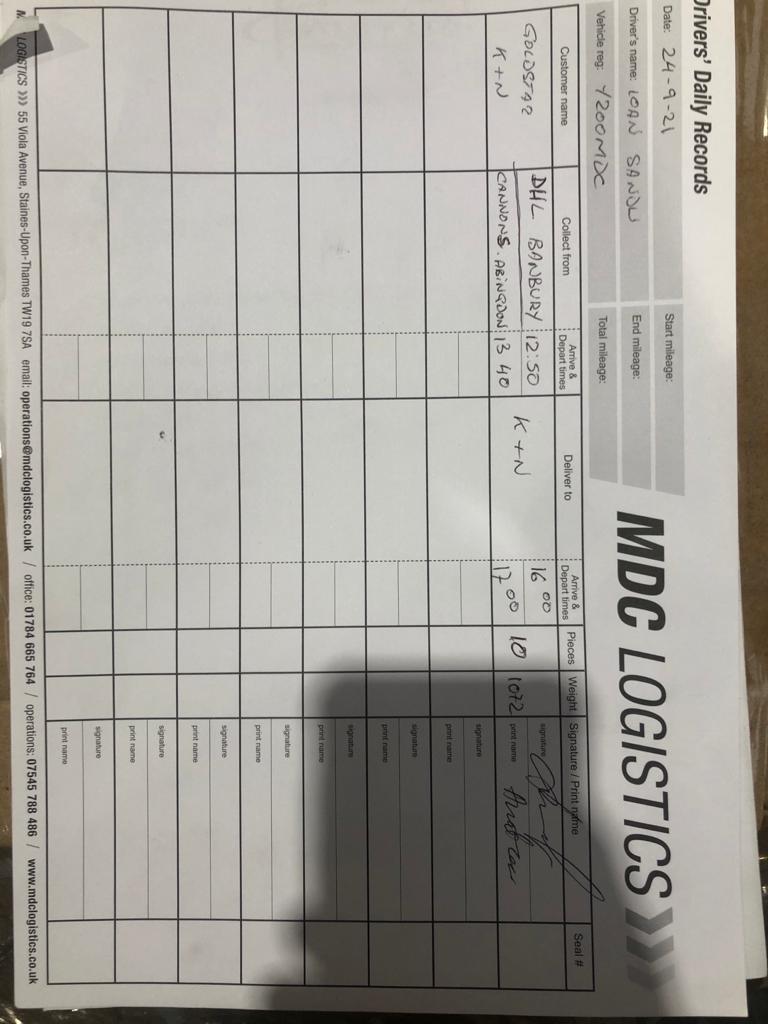 Drivers' Daily Records
MDC LOGISTICS
Date: 24-9-21
Start mileage:
Driver's name: IOAN SANDU
End mileage:
Vehicle reg: Y200MDC
Total mileage:
Customer name Collect from Arrive & Depart times Deliver to Arrive & Depart times Pieces Weight Signature / Print name Seal #
GOLDSTAR DHL BANBURY 12:50 K+N 16 00 10 1072 signature
K+N CANNONS. ABINGDON 13 40 17 00 print name
signature
print name
signature
print name
signature
print name
signature
print name
signature
print name
signature
print name
signature
print name
LOGISTICS >>> 55 Viola Avenue, Staines-Upon-Thames TW19 7SA email: operations@mdclogistics.co.uk / office: 01784 665 764 / operations: 07545 788 486 / www.mdclogistics.co.uk